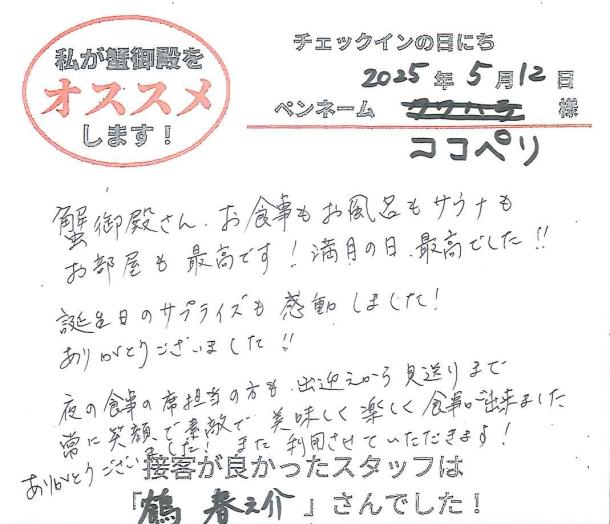 私が蟹御殿を
オススメ
します！
チェックインの日にち
2025年5月12日
ペンネーム 様
ココペリ
蟹御殿さん、お食事もお風呂もサウナも
お部屋も最高です！満月の日、最高でした!!
誕生日のサプライズも感動しました！
ありがとうございました!!
夜の食事の席担当の方も、出迎えから見送りまで
常に笑顔で素敵で、美味しく楽しく食事が出来ました
ありがとうございました！また利用させていただきます！
接客が良かったスタッフは
「鶴 春之介」さんでした！